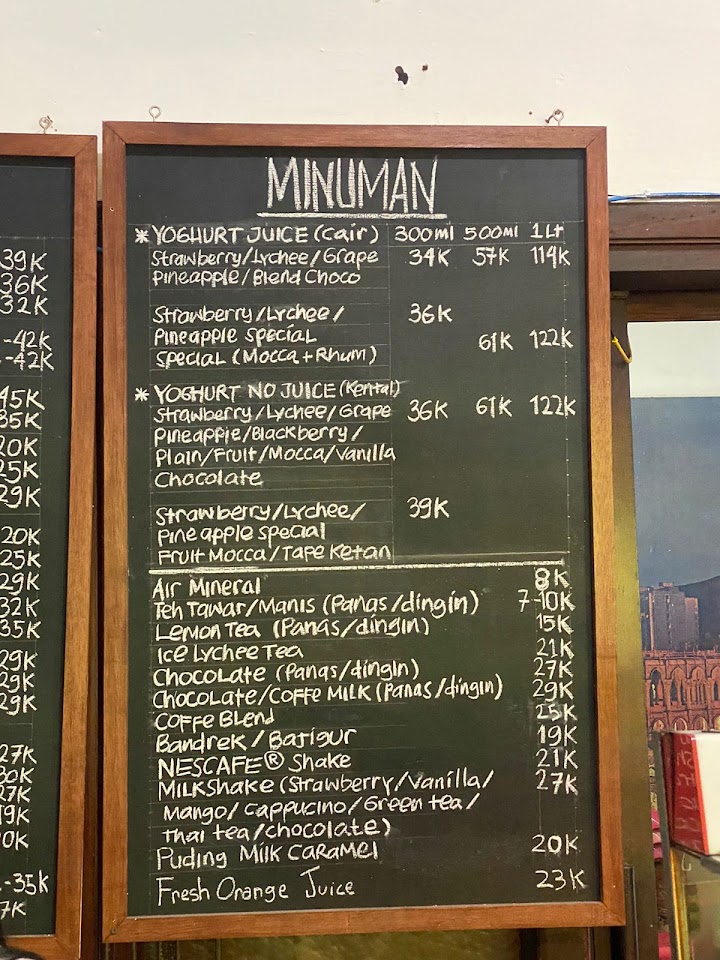 39K
36K
32K
-42K
-42K
45K
35K
20K
25K
29K
20K
25K
29K
32K
35K
29K
29K
29K
27K
30K
27K
19K
20K
-35K
7K
MINUMAN
* YOGHURT JUICE (cair) 300ml 500ml 1 Lt
Strawberry/Lychee/Grape 34K 57K 114K
Pineapple/Blend Choco
Strawberry/Lychee/ 36K
Pineapple special 61K 122K
Special (Mocca+Rhum)
* YOGHURT NO JUICE (Kental)
Strawberry/Lychee/Grape 36K 61K 122K
Pineapple/Blackberry/
Plain/Fruit/Mocca/Vanilla
Chocolate
Strawberry/Lychee/ 39K
Pine apple special
Fruit Mocca/Tape Ketan
Air Mineral 8K
Teh Tawar/Manis (Panas/dingin) 7-10K
Lemon Tea (Panas/dingin) 15K
Ice Lychee Tea 21K
Chocolate (Panas/dingin) 27K
Chocolate/Coffe Milk (Panas/dingin) 29K
Coffe Blend 25K
Bandrek/Bajigur 19K
NESCAFE® Shake 21K
Milkshake (Strawberry/Vanilla/ 27K
Mango/Cappucino/Green tea/
Thai tea/chocolate)
Puding Milk Caramel 20K
Fresh Orange Juice 23K